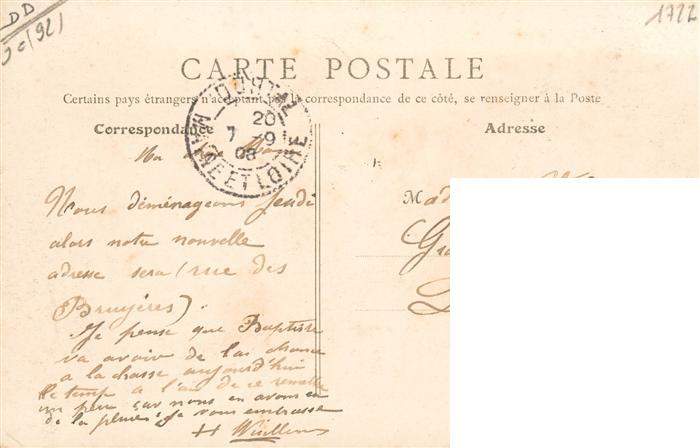 DD
1722
CARTE POSTALE
Certains pays étrangers n'acceptant la correspondance de ce côté, se renseigner à la Poste
DURTAL
20
7 -9
08
MAINE ET LOIRE
Correspondance
Adresse
Ma
Nous déménageons Jeudi
alors notre nouvelle
adresse sera (rue des
Bruyères).
Je pense que Baptiste
va avoir de la chance
a la chasse aujourd'hui
le temp a l'air de ce remettre
un peu car nous en avons eu
de la pluie. Je vous embrasse
H
Mad